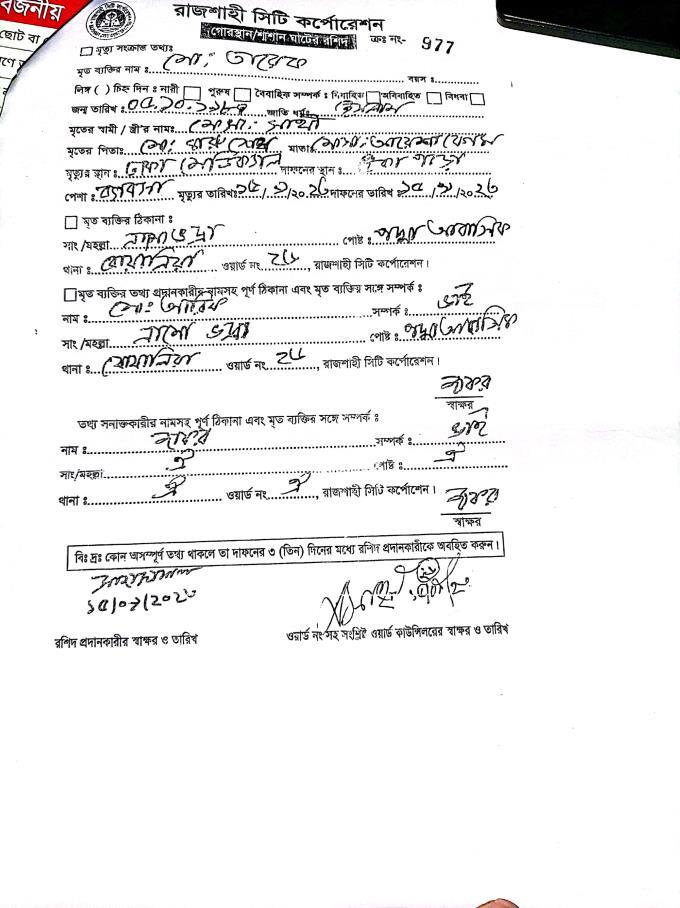 বর্জনীয়
ছোট বা
রাজশাহী সিটি কর্পোরেশন
গোরস্থান/শ্মশান ঘাটের রশিদ ক্রঃ নং- 977
মৃত্যু সংক্রান্ত তথ্যঃ
মৃত ব্যক্তির নাম ঃ মো: তারেক বয়স ঃ
লিঙ্গ ( ) চিহ্ন দিন ঃ নারী পুরুষ বৈবাহিক সম্পর্ক ঃ বিবাহিত অবিবাহিত বিধবা
জন্ম তারিখ ঃ জাতি ধর্মঃ ইসলাম
মৃতের স্বামী / স্ত্রী'র নামঃ মোসা: সাথী
মৃতের পিতাঃ মো: মাতাঃ মোসা: আয়েশা বেগম
মৃত্যুর স্থান ঃ ঢাকা মেডিক্যাল দাফনের স্থান ঃ
পেশা ঃ ব্যবসা মৃত্যুর তারিখঃ দাফনের তারিখ ঃ
মৃত ব্যক্তির ঠিকানা ঃ
সাং /মহল্লা নামোভদ্রা পোষ্ট ঃ পদ্মা আবাসিক
থানা ঃ বোয়ালিয়া ওয়ার্ড নং ২৬, রাজশাহী সিটি কর্পোরেশন।
মৃত ব্যক্তির তথ্য প্রদানকারীর নামসহ পূর্ণ ঠিকানা এবং মৃত ব্যক্তির সঙ্গে সম্পর্ক ঃ
নাম ঃ মো: আরিফ সম্পর্ক ঃ ভাই
সাং /মহল্লা নামো ভদ্রা পোষ্ট ঃ পদ্মা আবাসিক
থানা ঃ বোয়ালিয়া ওয়ার্ড নং ২৬, রাজশাহী সিটি কর্পোরেশন।
স্বাক্ষর
তথ্য সনাক্তকারীর নামসহ পূর্ণ ঠিকানা এবং মৃত ব্যক্তির সঙ্গে সম্পর্ক ঃ
নাম ঃ সম্পর্ক ঃ ভাই
সাং/মহল্লা ঐ পোষ্ট ঃ ঐ
থানা ঃ ঐ ওয়ার্ড নং ঐ, রাজশাহী সিটি কর্পোশেন।
স্বাক্ষর
বিঃ দ্রঃ কোন অসম্পূর্ণ তথ্য থাকলে তা দাফনের ৩ (তিন) দিনের মধ্যে রশিদ প্রদানকারীকে অবহিত করুন।
রশিদ প্রদানকারীর স্বাক্ষর ও তারিখ
ওয়ার্ড নং সহ সংশ্লিষ্ট ওয়ার্ড কাউন্সিলরের স্বাক্ষর ও তারিখ